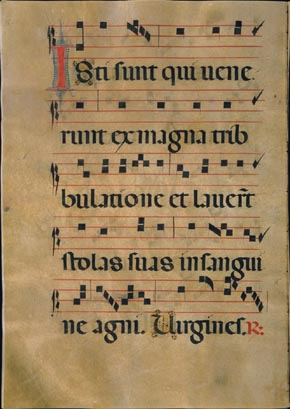 Isti sunt qui uene
runt ex magna trib
bulatione et lauer̄t
stolas suas in sangui
ne agni. Uirgines. R: